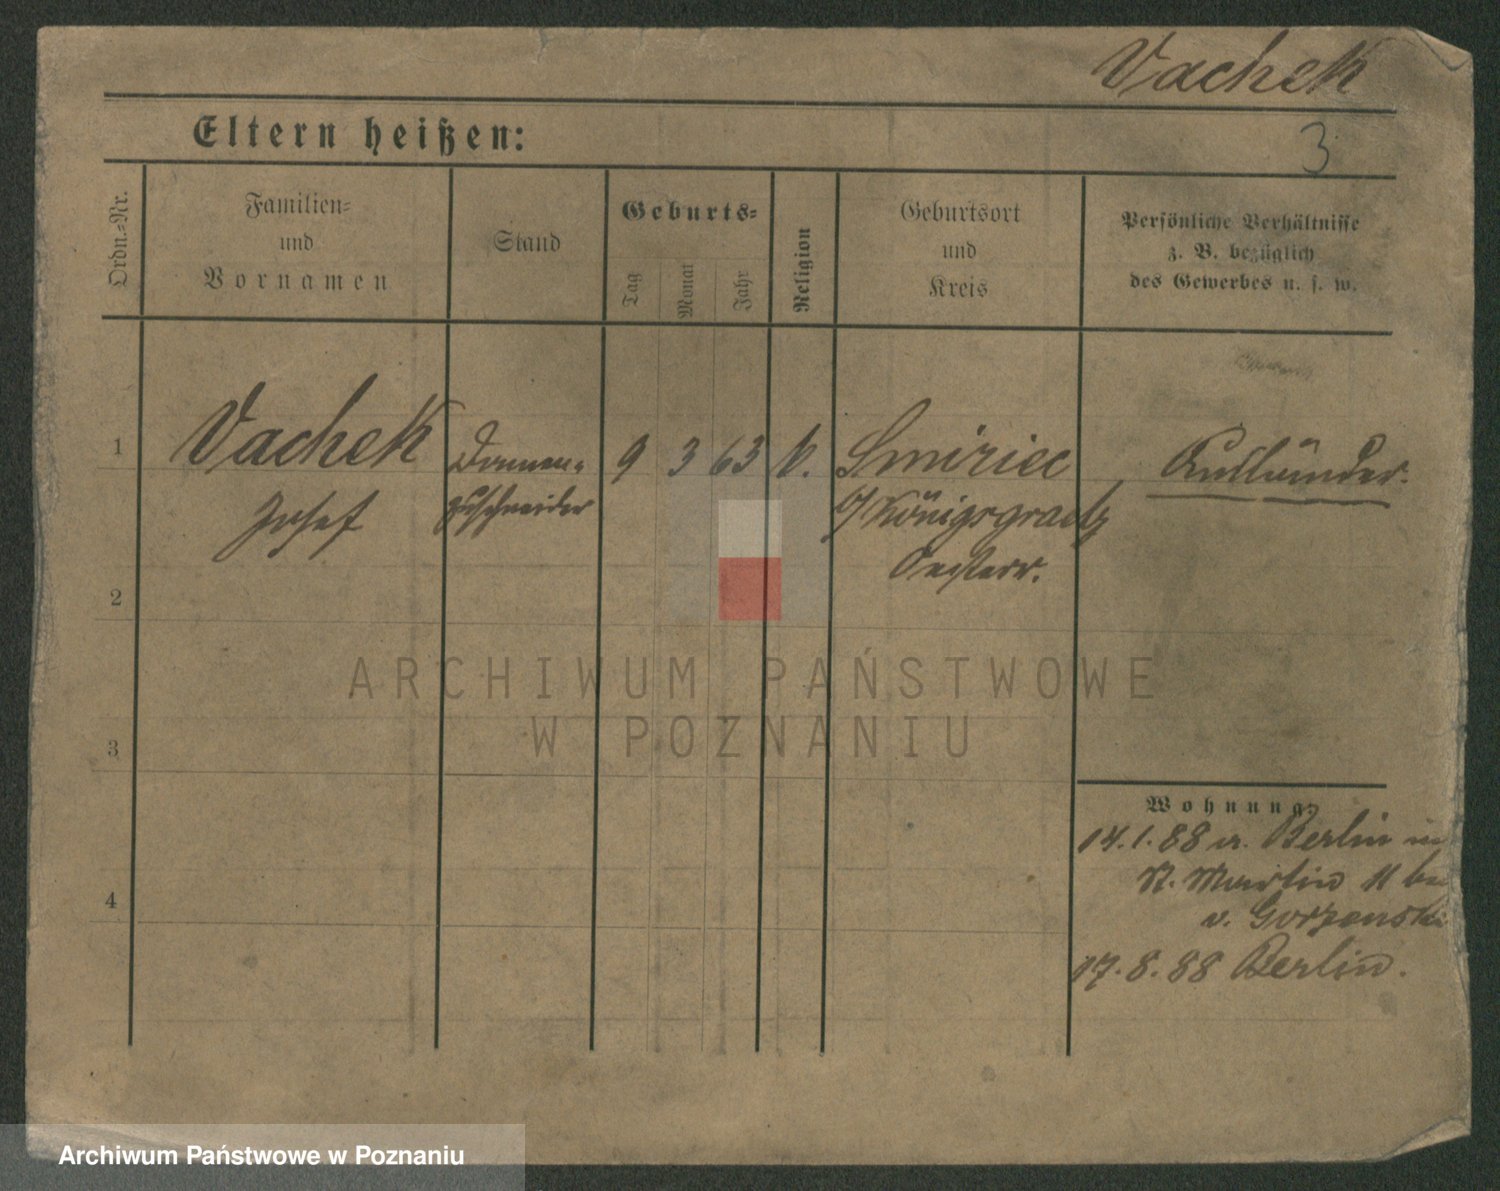 Vachek
3
Eltern heißen:
Ordn.-Nr.
Familien-
und
Vornamen
Stand
Geburts-
Tag
Monat
Jahr
Religion
Geburtsort
und
Kreis
Persönliche Verhältnisse
z. B. bezüglich
des Gewerbes u. s. w.
1
Vachek
Josef
Damen-
zuschneider
9 3 63 k.
Smiriec
b/ Königsgraetz
Oesterr.
Ausländer.
2
ARCHIWUM PAŃSTWOWE
W POZNANIU
3
Wohnung:
14.1.88 v. Berlin
St. Martin 11
v. Gorzenski
17.8.88 Berlin.
4
Archiwum Państwowe w Poznaniu